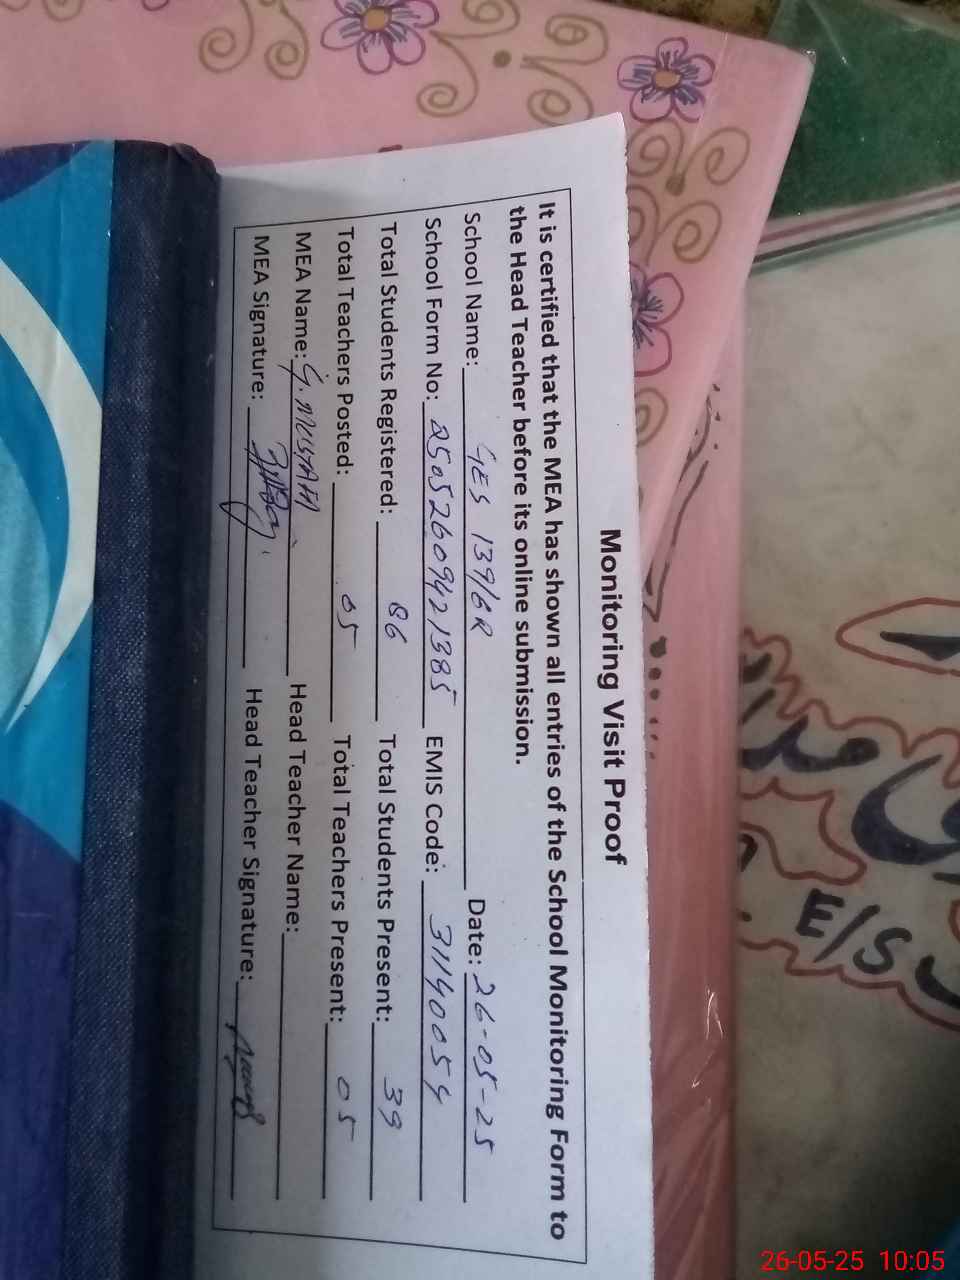 Monitoring Visit Proof
It is certified that the MEA has shown all entries of the School Monitoring Form to
the Head Teacher before its online submission.
School Name: GES 139/6R Date: 26-05-25
School Form No: 25052609421385 EMIS Code: 31140054
Total Students Registered: 86 Total Students Present: 39
Total Teachers Posted: 05 Total Teachers Present: 05
MEA Name: G. MUSTAFA Head Teacher Name:
MEA Signature: Head Teacher Signature:
E/S
26-05-25 10:05